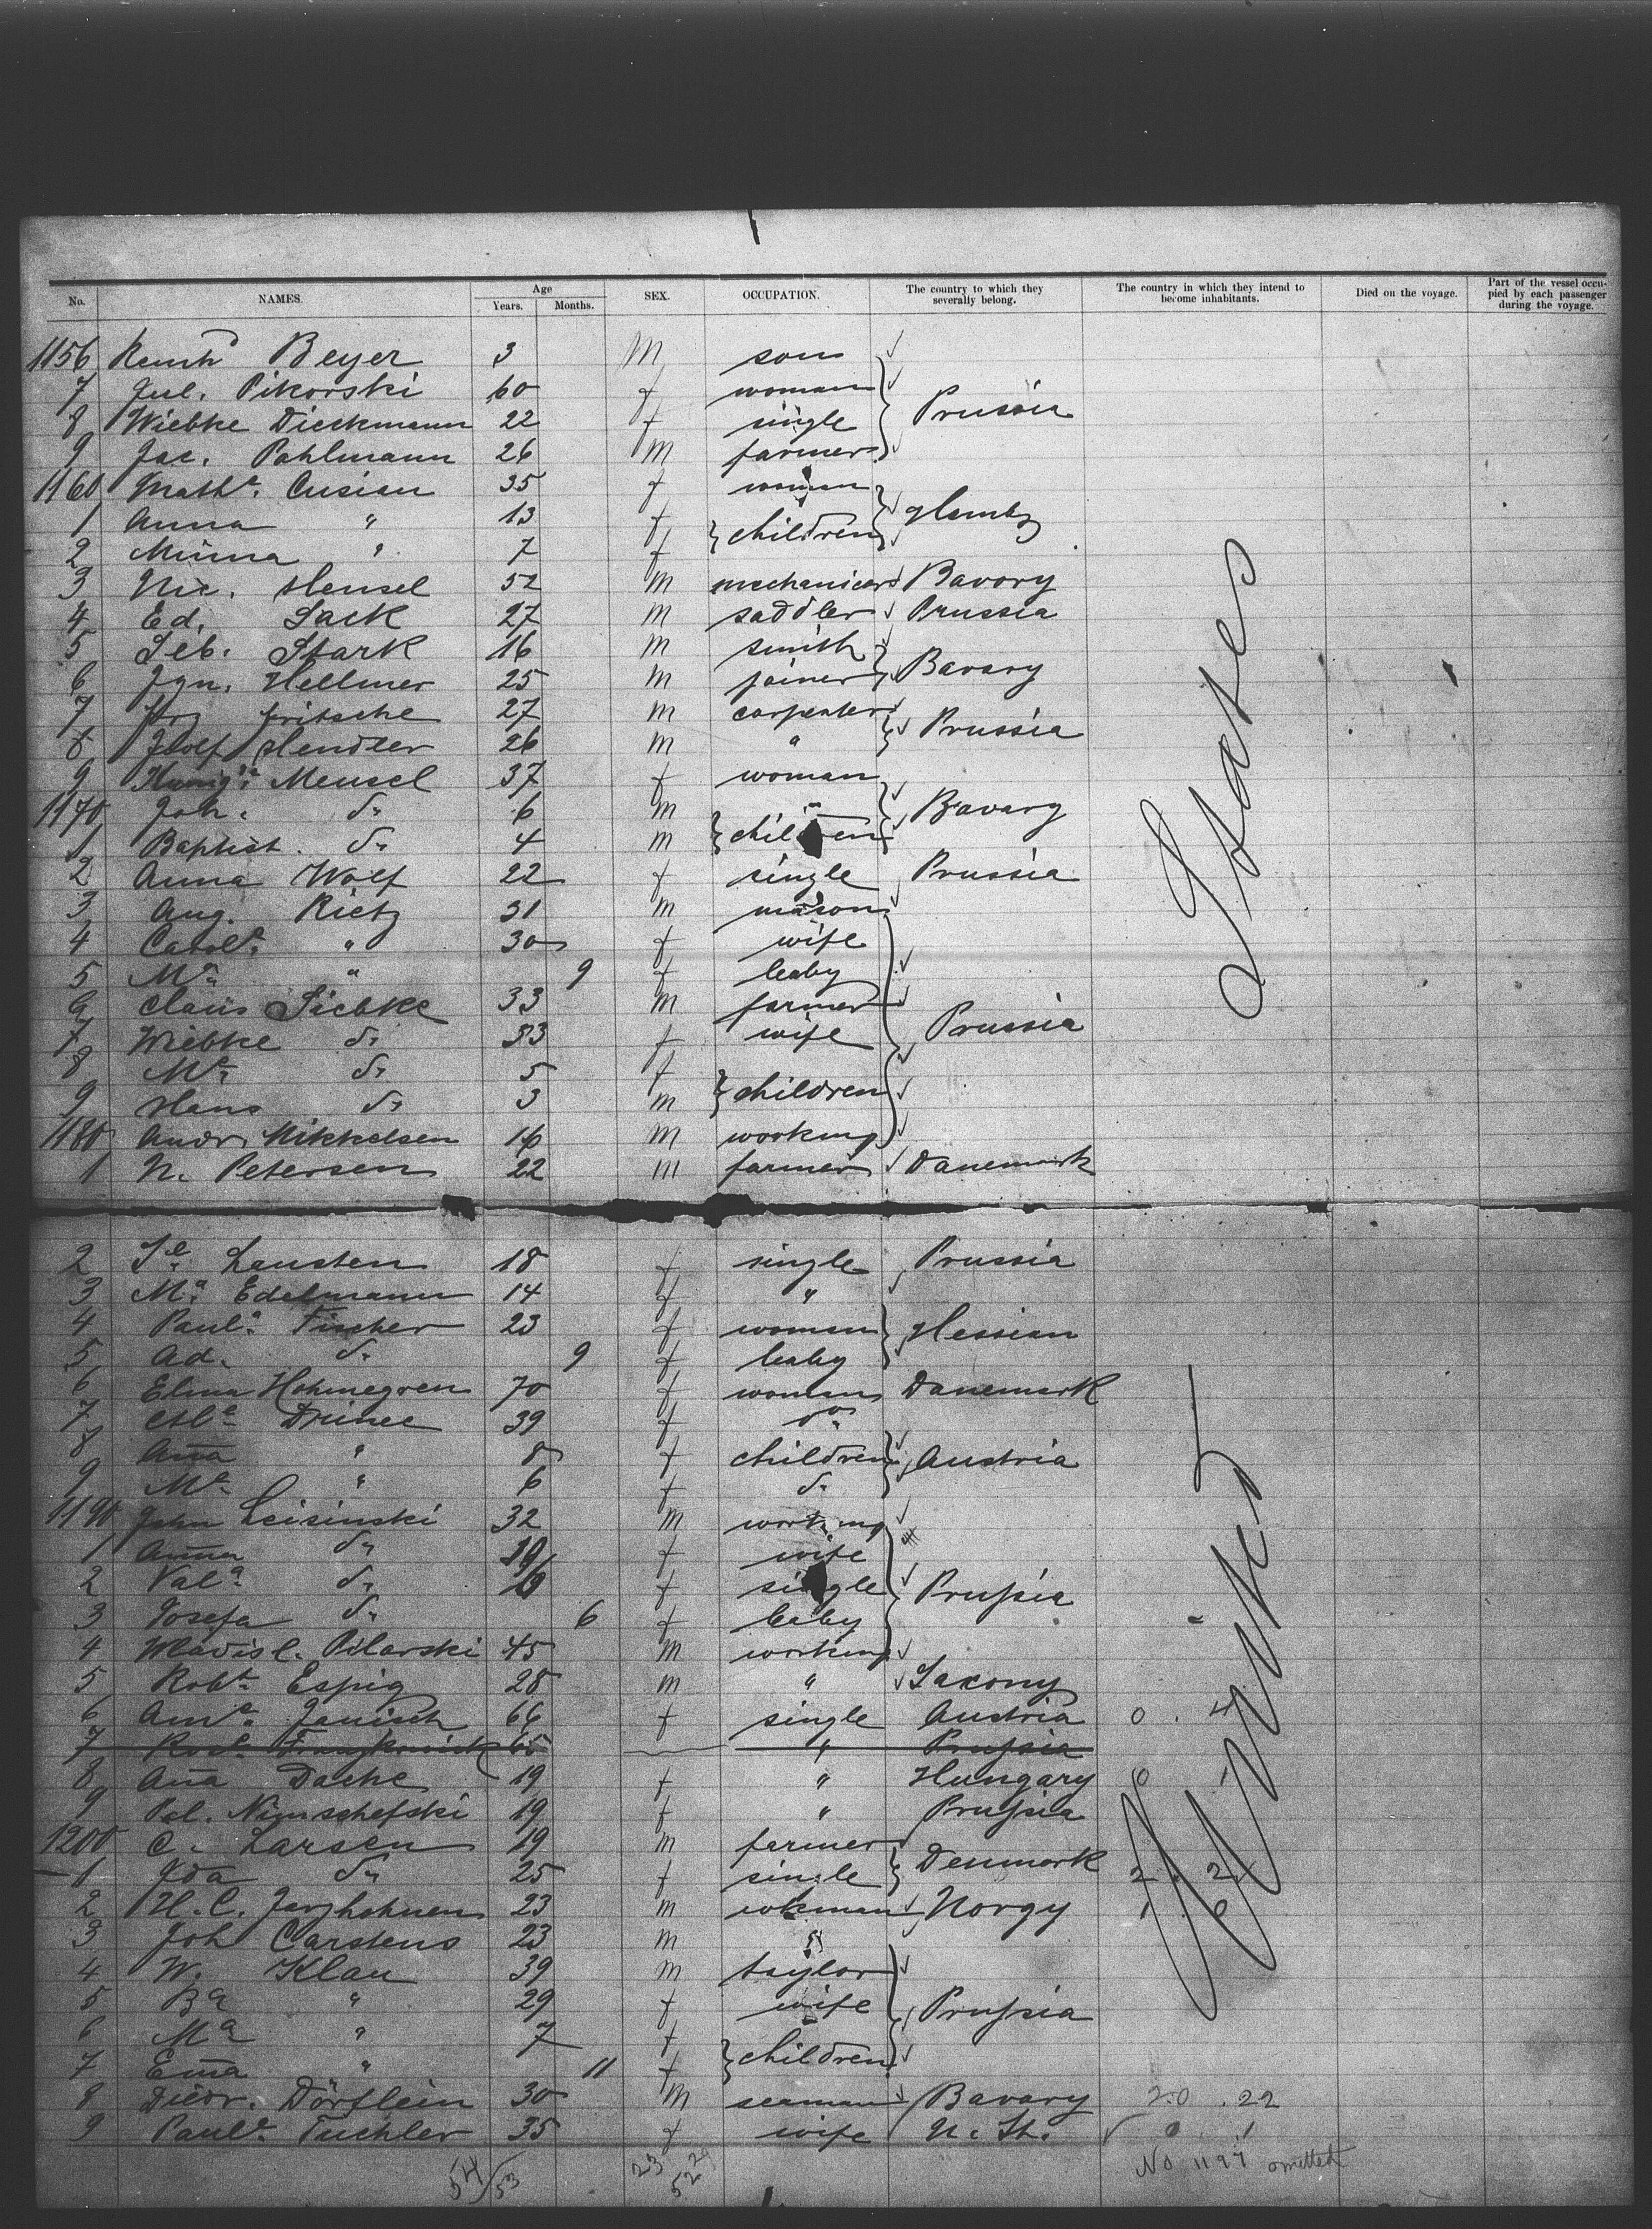 No. NAMES. Age Years. Months. SEX. OCCUPATION. The country to which they severally belong. The country in which they intend to become inhabitants. Died on the voyage. Part of the vessel occupied by each passenger during the voyage.
1156 Beyer 3 M son
7 Jul. Pikorski 60 f woman
8 Wiebke Dieckmann 22 f single Prussia
9 Jac. Pahlmann 26 M farmer
1160 Mathe. Cusian 35 f woman
1 Anna " 13 f } children Hambg
2 Minna " 7 f
3 Nic. Hensel 52 M mechanicer Bavory
4 Ed. Sack 27 M saddler Prussia
5 Seb. Stark 16 M smith
6 Ign. Hellmer 25 M joiner Bavary
7 Fritsche 27 M carpenter Prussia
8 Hendler 26 M "
9 Meusel 37 f woman
1170 Joh. do 6 M } children Bavary
1 Baptist. do 4 M
2 Anna Wolf 22 f single Prussia
3 Aug. Rietz 31 M mason
4 Carole. " 30 f wife
5 Ma. " 9 f baby
6 Claus Siebke 33 M farmer
7 Wiebke do 33 f wife Prussia
8 Ma. do 5 f } children
9 Hans do 3 M
1180 Andr. Mikkelsen 16 M working
1 N. Petersen 22 M farmer Danemark
2 Lausten 18 f single Prussia
3 Ma. Edelmann 14 f "
4 Paula. Fischer 23 f woman Hessian
5 Ad. do 9 f baby
6 Elina Hohmegren 70 f woman Danemark
7 Drinec 39 f do
8 Anna " 8 f children Austria
9 Ma. " 6 f do
1190 John Leisinski 32 M working
1 Anna do f wife
2 Vala. do f single Prussia
3 Josefa do 6 f baby
4 Wladisl. Pilarski 45 M working
5 Robt. Espig 28 M " Saxony
6 Janisch 66 f single Austria 0 . 4
7 65 " Prussia
8 Anna Dache 19 f " Hungary 0 1
9 Pel. Nimschefski 19 f " Prussia
1200 C. Larsen 19 M farmer
1 Ida do 25 f single Denmark 2 . 2
2 H. C. 23 M wkman Norgy 1 . 0
3 Joh Carstens 23 M "
4 W. Klau 39 M taylor
5 Ba " 29 f wife Prussia
6 Ma " 7 f } children
7 Emma " 11 f
8 Diedr. Dörflein 30 M seaman Bavary 20 . 22
9 Paule. Tuchler 35 f wife N. St. 0 1
54/53 23 29 52 No 1197 omitted
United States